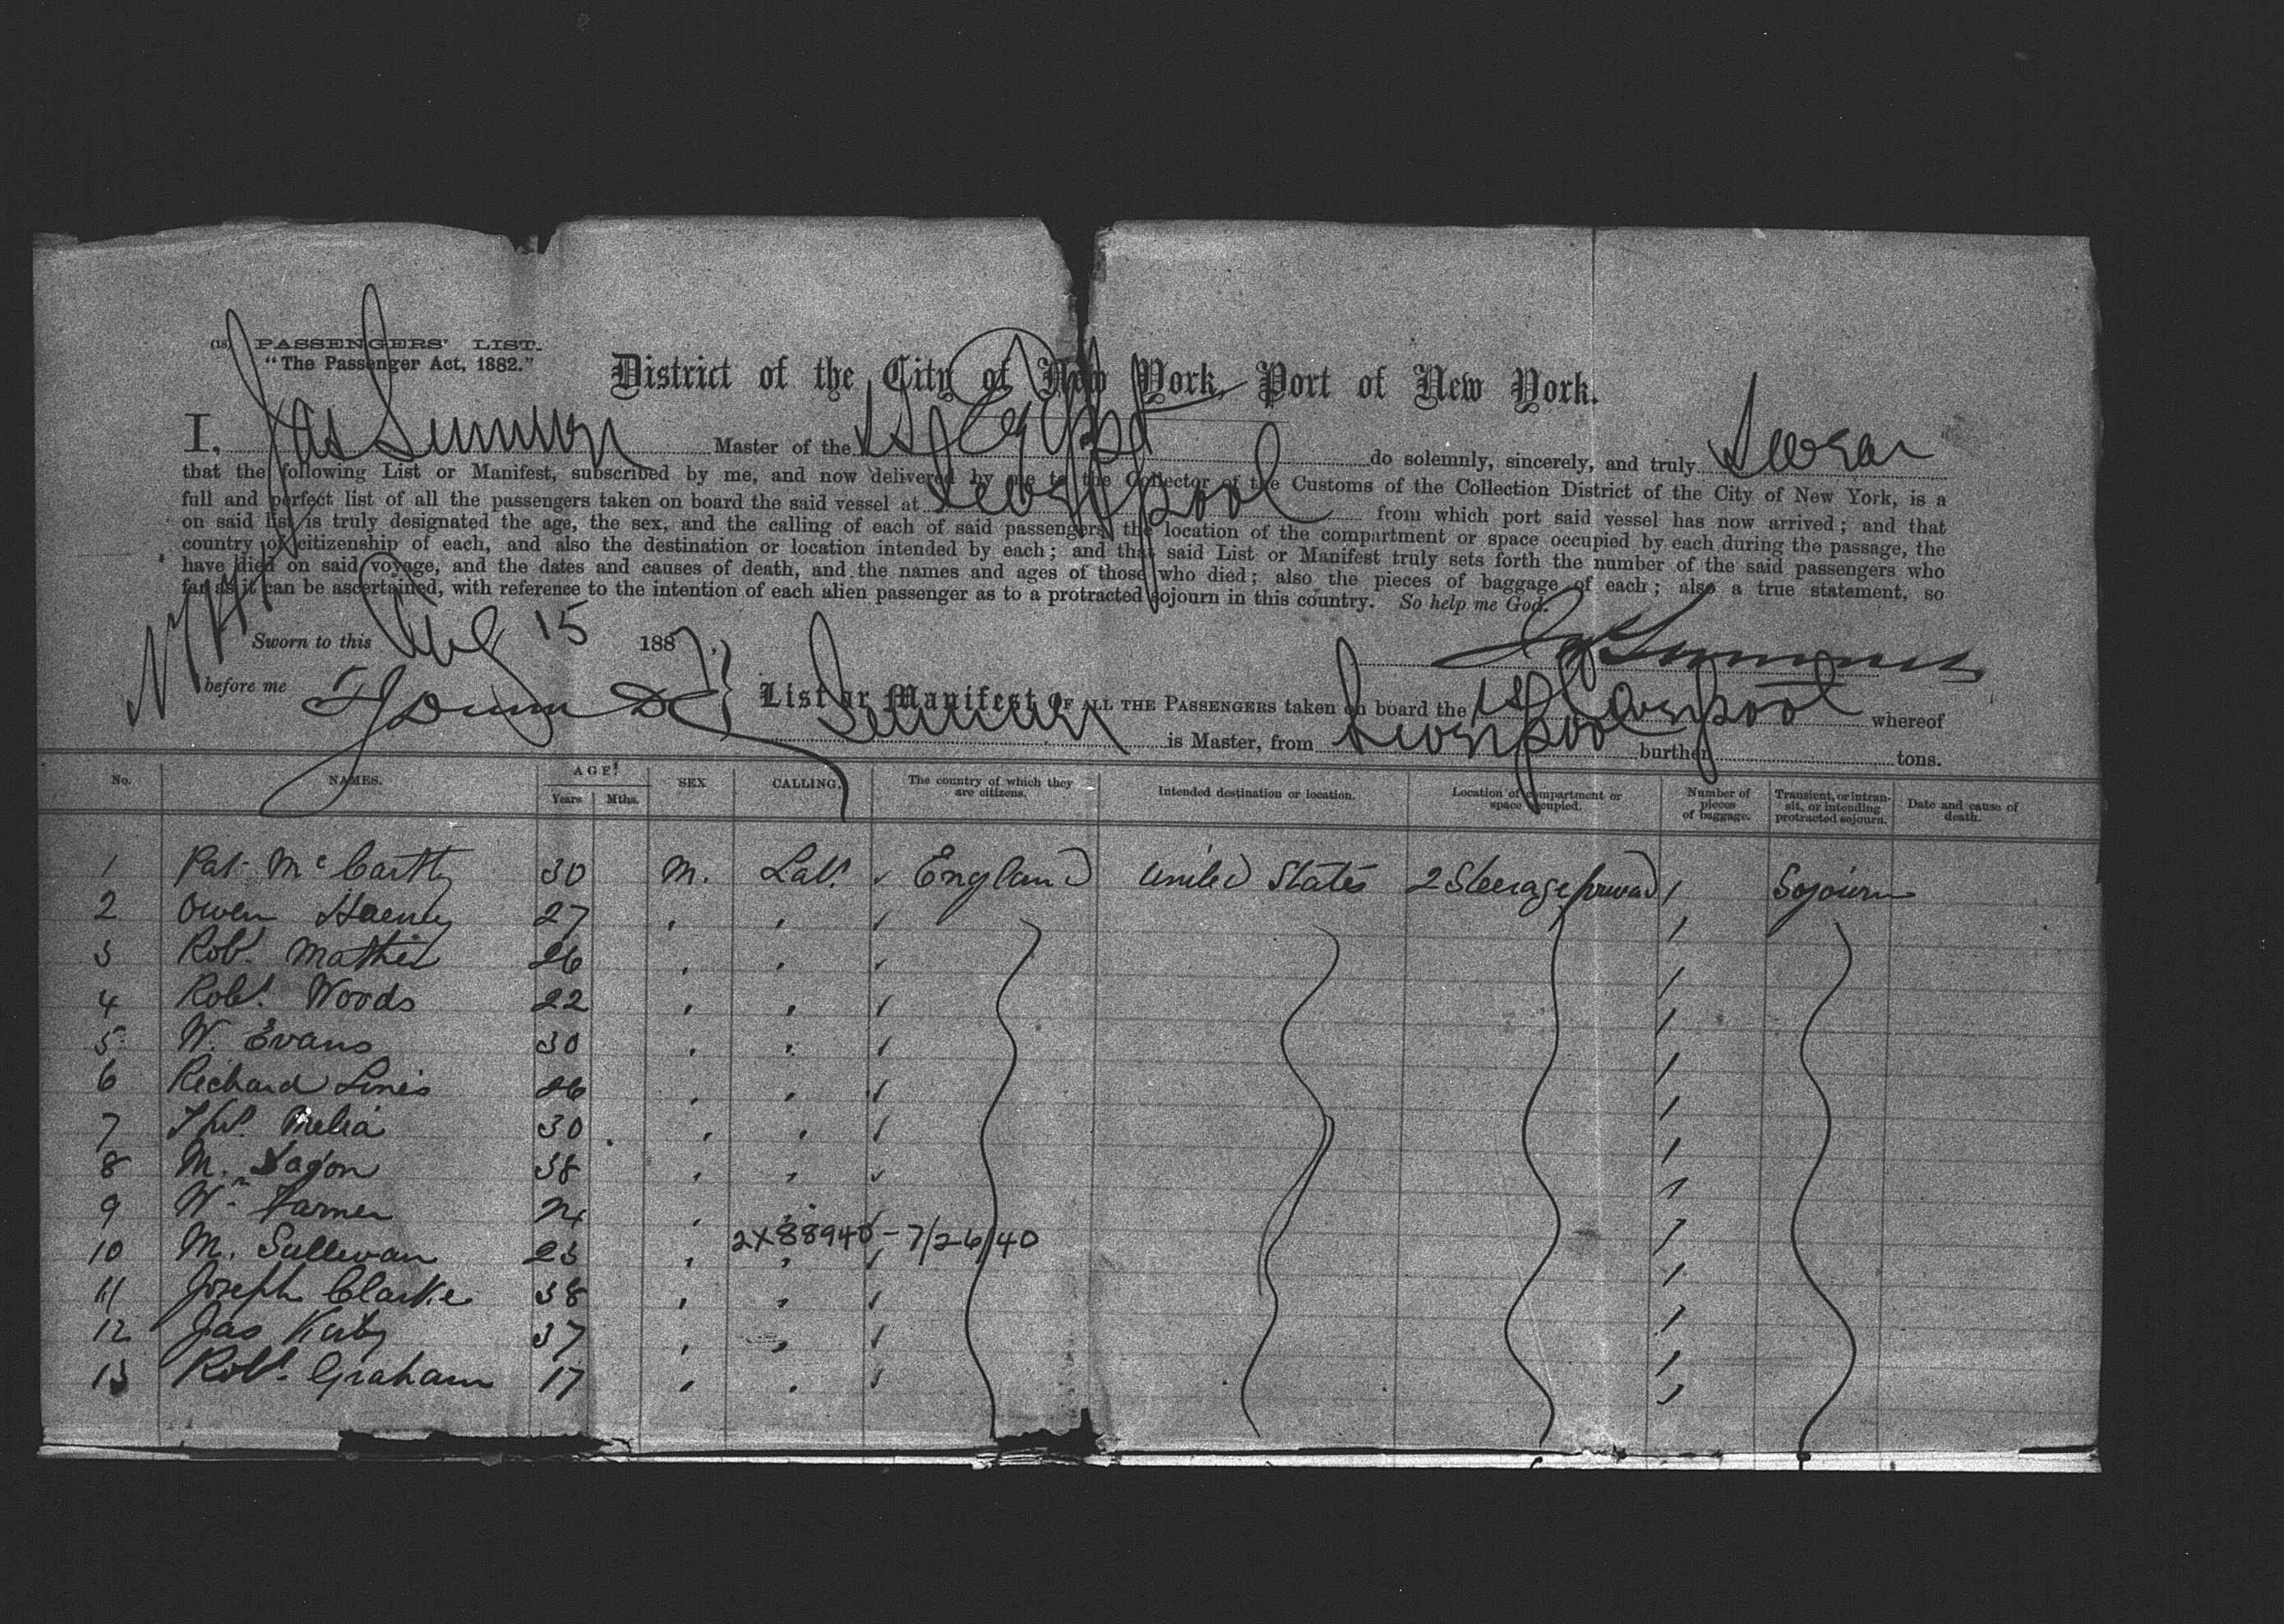 (18) PASSENGERS' LIST.
"The Passenger Act, 1882."
District of the City of New York, Port of New York.
I, Jas Sumner Master of the SS Egypt do solemnly, sincerely, and truly Swear
that the following List or Manifest, subscribed by me, and now delivered by me to the Collector of the Customs of the Collection District of the City of New York, is a
full and perfect list of all the passengers taken on board the said vessel at Liverpool from which port said vessel has now arrived; and that
on said list is truly designated the age, the sex, and the calling of each of said passengers, the location of the compartment or space occupied by each during the passage, the
country of citizenship of each, and also the destination or location intended by each; and that said List or Manifest truly sets forth the number of the said passengers who
have died on said voyage, and the dates and causes of death, and the names and ages of those who died; also the pieces of baggage of each; also a true statement, so
far as it can be ascertained, with reference to the intention of each alien passenger as to a protracted sojourn in this country. So help me God.
Sworn to this 15 1887,
before me
List or Manifest OF ALL THE PASSENGERS taken on board the whereof
Sumner is Master, from Liverpool burthen tons.
No. NAMES. AGE. Years Mths. SEX CALLING. The country of which they are citizens. Intended destination or location. Location of compartment or space occupied. Number of pieces of baggage. Transient, or intransit, or intending protracted sojourn. Date and cause of death.
1 Pat McCarthy 30 M. Labr England United States 2 Steerage forward 1 Sojourn
2 Owen 27 , , 1
3 Robt 26 , , 1
4 Robt. Woods 22 , , 1
5 W. Evans 30 , , 1
6 Richard Lines 26 , , 1
7 Melia 30 , , 1
8 M. 38 , , 1
9 Wm Farmer 24 , , 1
2X88940 - 7/26/40
10 M. Sullivan 23 , , 1
11 Joseph Clarke 38 , , 1
12 Jas Kirby 37 , , 1
13 Robt. Graham 17 , , 1